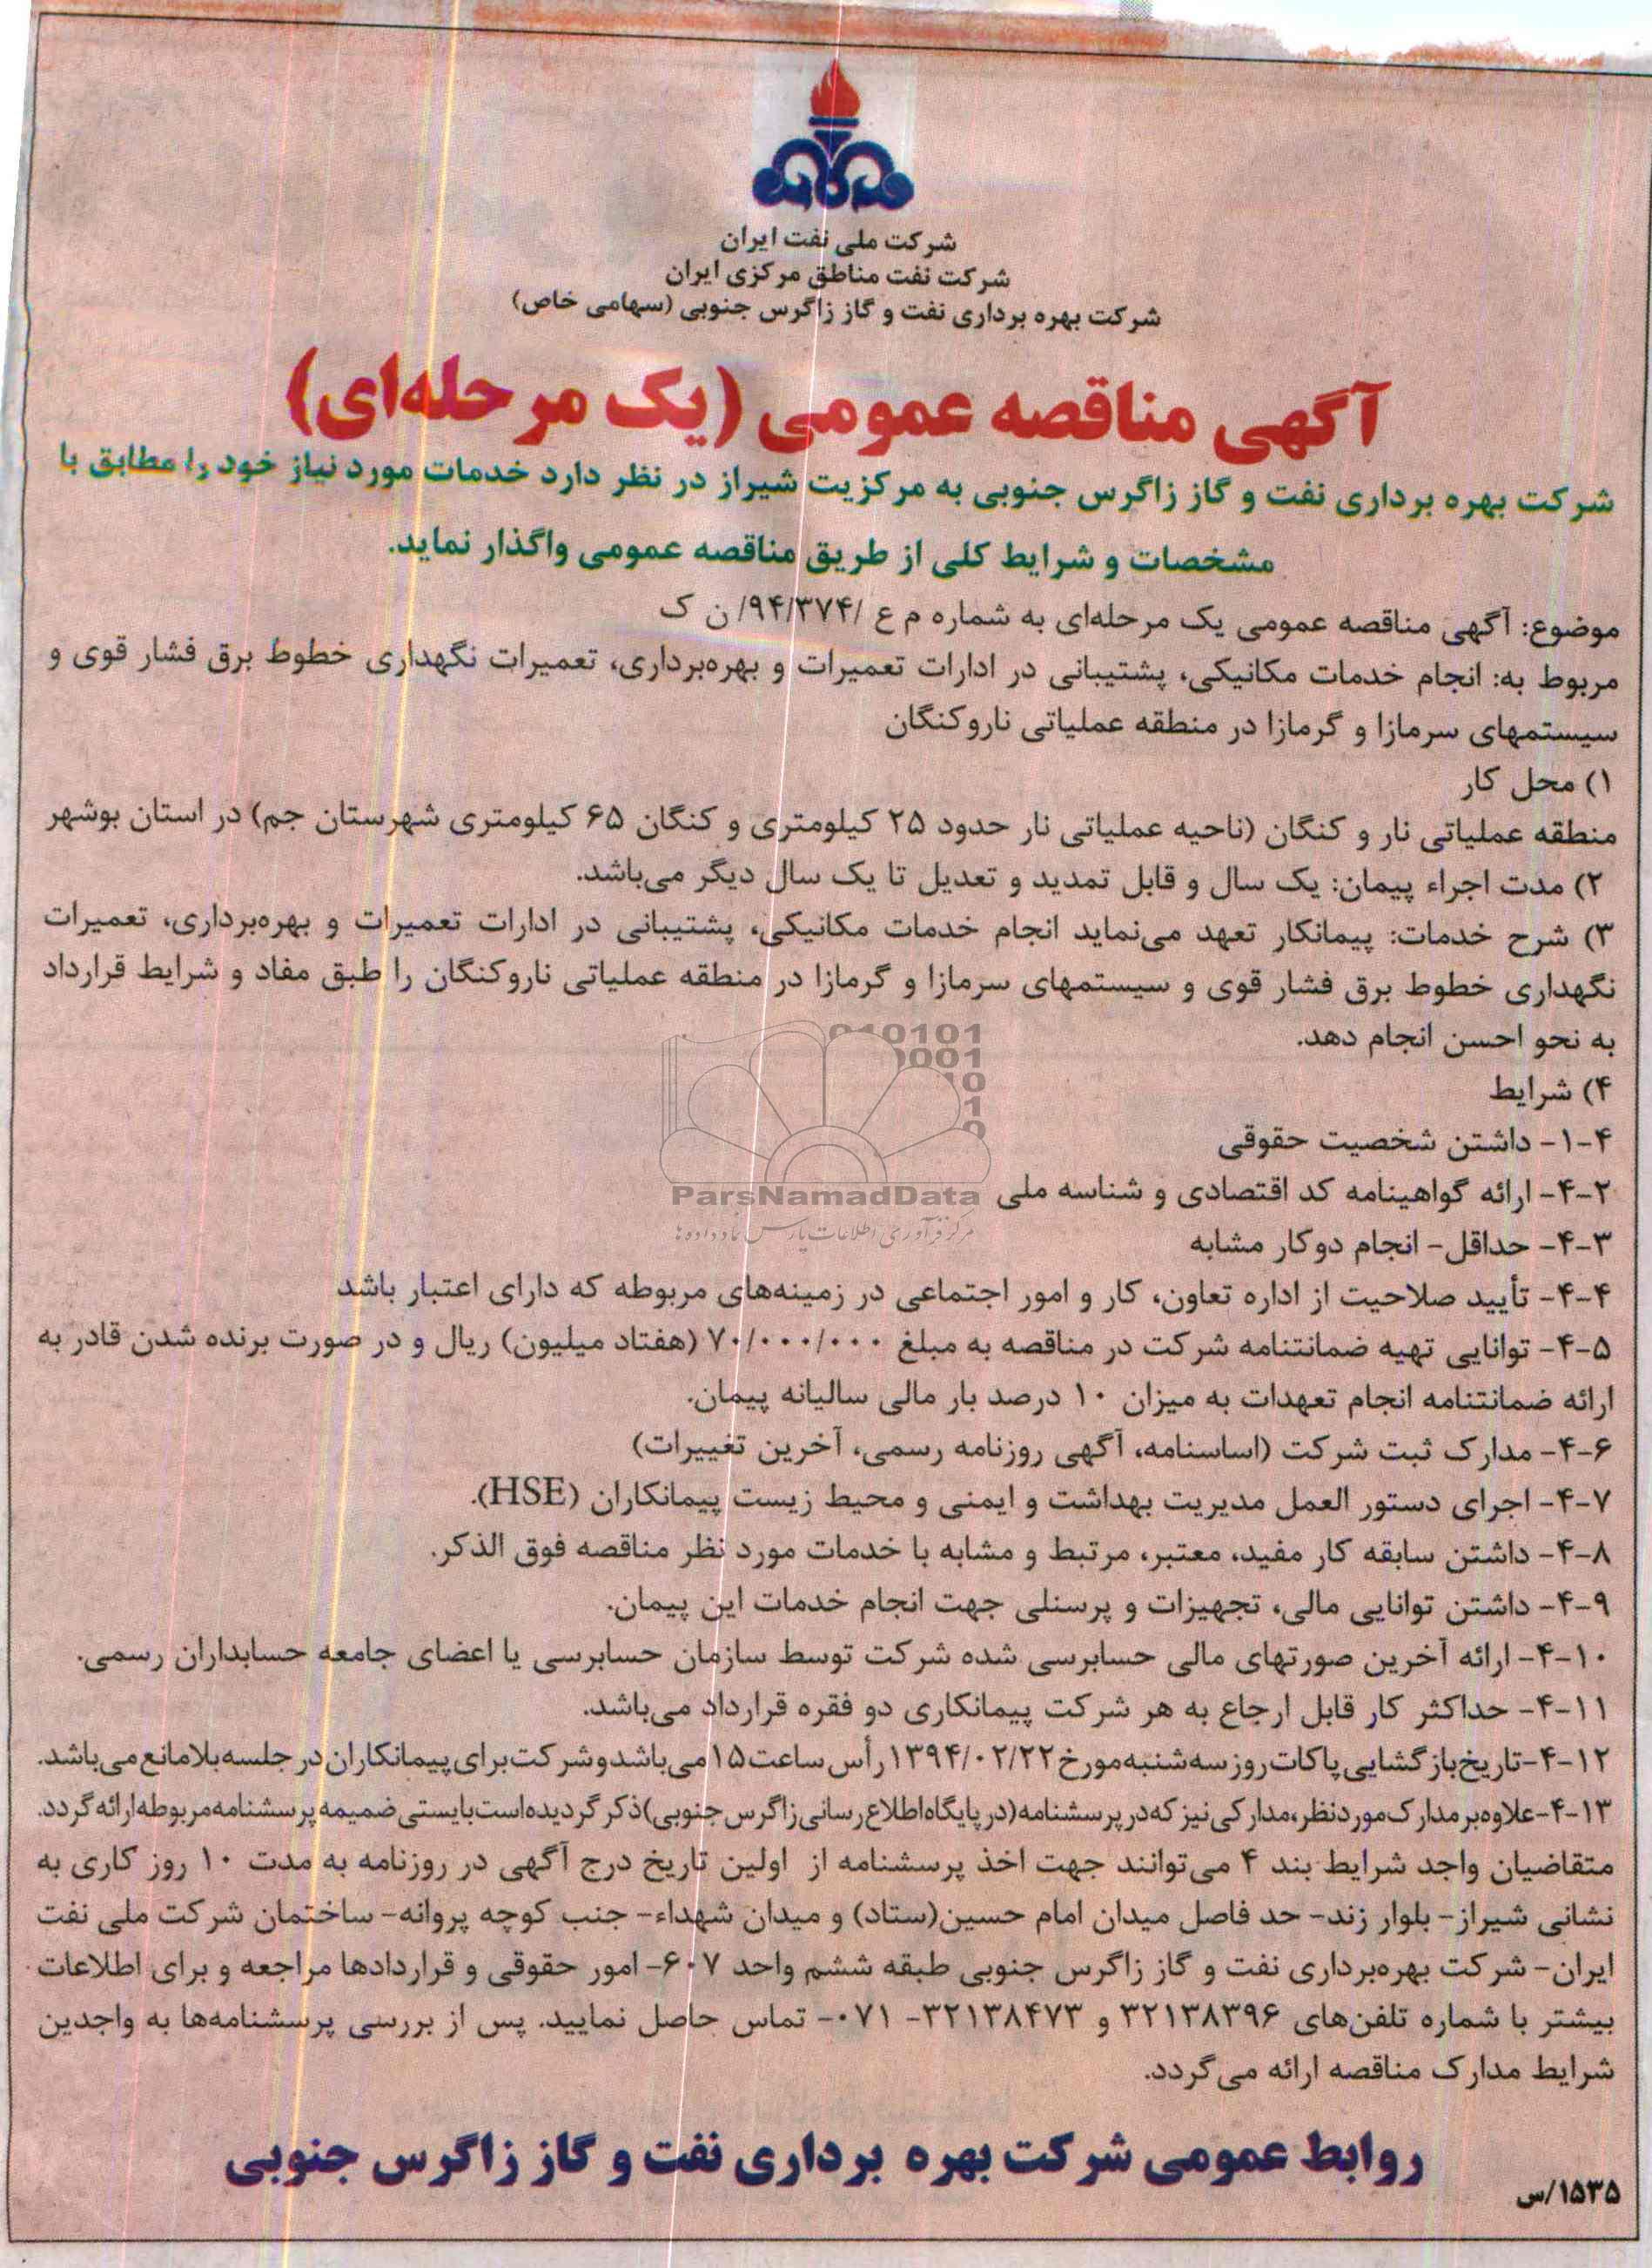 شرکت ملی نفت ایران
شرکت نفت مناطق مرکزی ایران
شرکت بهره برداری نفت و گاز زاگرس جنوبی (سهامی خاص)
آگهی مناقصه عمومی (یک مرحله‌ای)
شرکت بهره برداری نفت و گاز زاگرس جنوبی به مرکزیت شیراز در نظر دارد خدمات مورد نیاز خود را مطابق با
مشخصات و شرایط کلی از طریق مناقصه عمومی واگذار نماید.
موضوع: آگهی مناقصه عمومی یک مرحله‌ای به شماره م ع /۹۴/۳۷۴/ ن ک
مربوط به: انجام خدمات مکانیکی، پشتیبانی در ادارات تعمیرات و بهره‌برداری، تعمیرات نگهداری خطوط برق فشار قوی و
سیستمهای سرمازا و گرمازا در منطقه عملیاتی ناروکنگان
۱) محل کار
منطقه عملیاتی نار و کنگان (ناحیه عملیاتی نار حدود ۲۵ کیلومتری و کنگان ۶۵ کیلومتری شهرستان جم) در استان بوشهر
۲) مدت اجراء پیمان: یک سال و قابل تمدید و تعدیل تا یک سال دیگر می‌باشد.
۳) شرح خدمات: پیمانکار تعهد می‌نماید انجام خدمات مکانیکی، پشتیبانی در ادارات تعمیرات و بهره‌برداری، تعمیرات
نگهداری خطوط برق فشار قوی و سیستمهای سرمازا و گرمازا در منطقه عملیاتی ناروکنگان را طبق مفاد و شرایط قرارداد
به نحو احسن انجام دهد.
۴) شرایط
۴-۱- داشتن شخصیت حقوقی
۴-۲- ارائه گواهینامه کد اقتصادی و شناسه ملی
۴-۳- حداقل- انجام دوکار مشابه
۴-۴- تأیید صلاحیت از اداره تعاون، کار و امور اجتماعی در زمینه‌های مربوطه که دارای اعتبار باشد
۴-۵- توانایی تهیه ضمانتنامه شرکت در مناقصه به مبلغ ۷۰/۰۰۰/۰۰۰ (هفتاد میلیون) ریال و در صورت برنده شدن قادر به
ارائه ضمانتنامه انجام تعهدات به میزان ۱۰ درصد بار مالی سالیانه پیمان.
۴-۶- مدارک ثبت شرکت (اساسنامه، آگهی روزنامه رسمی، آخرین تغییرات)
۴-۷- اجرای دستور العمل مدیریت بهداشت و ایمنی و محیط زیست پیمانکاران (HSE).
۴-۸- داشتن سابقه کار مفید، معتبر، مرتبط و مشابه با خدمات مورد نظر مناقصه فوق الذکر.
۴-۹- داشتن توانایی مالی، تجهیزات و پرسنلی جهت انجام خدمات این پیمان.
۴-۱۰- ارائه آخرین صورتهای مالی حسابرسی شده شرکت توسط سازمان حسابرسی یا اعضای جامعه حسابداران رسمی.
۴-۱۱- حداکثر کار قابل ارجاع به هر شرکت پیمانکاری دو فقره قرارداد می‌باشد.
۴-۱۲- تاریخ بازگشایی پاکات روز سه شنبه مورخ ۱۳۹۴/۰۲/۲۲ رأس ساعت ۱۵ می‌باشد و شرکت برای پیمانکاران در جلسه بلامانع می‌باشد.
۴-۱۳- علاوه بر مدارک مورد نظر، مدارکی نیز که در پرسشنامه (در پایگاه اطلاع رسانی زاگرس جنوبی) ذکر گردیده است بایستی ضمیمه پرسشنامه مربوطه ارائه گردد.
متقاضیان واجد شرایط بند ۴ می‌توانند جهت اخذ پرسشنامه از اولین تاریخ درج آگهی در روزنامه به مدت ۱۰ روز کاری به
نشانی شیراز- بلوار زند- حد فاصل میدان امام حسین(ستاد) و میدان شهداء- جنب کوچه پروانه- ساختمان شرکت ملی نفت
ایران- شرکت بهره‌برداری نفت و گاز زاگرس جنوبی طبقه ششم واحد ۶۰۷- امور حقوقی و قراردادها مراجعه و برای اطلاعات
بیشتر با شماره تلفن‌های ۳۲۱۳۸۳۹۶ و ۳۲۱۳۸۴۷۳- ۰۷۱- تماس حاصل نمایید. پس از بررسی پرسشنامه‌ها به واجدین
شرایط مدارک مناقصه ارائه می‌گردد.
روابط عمومی شرکت بهره برداری نفت و گاز زاگرس جنوبی
۱۵۳۵/س
ParsNamadData
مرکز فرآوری اطلاعات پارس نماد داده‌ها